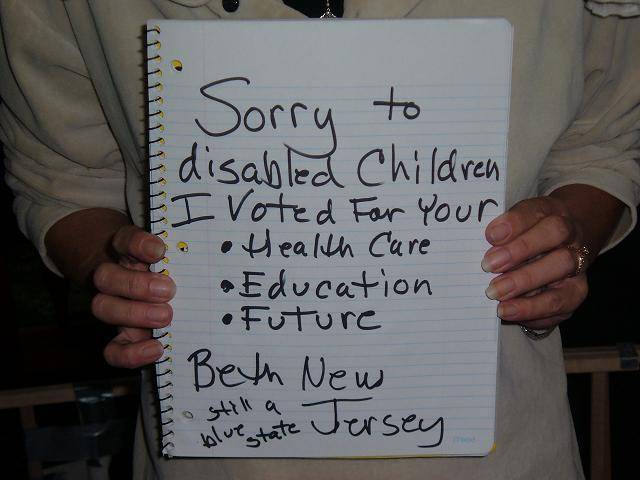 Sorry to
disabled Children
I Voted For Your
• Health Care
• Education
• Future
Beth New
still a
blue state Jersey